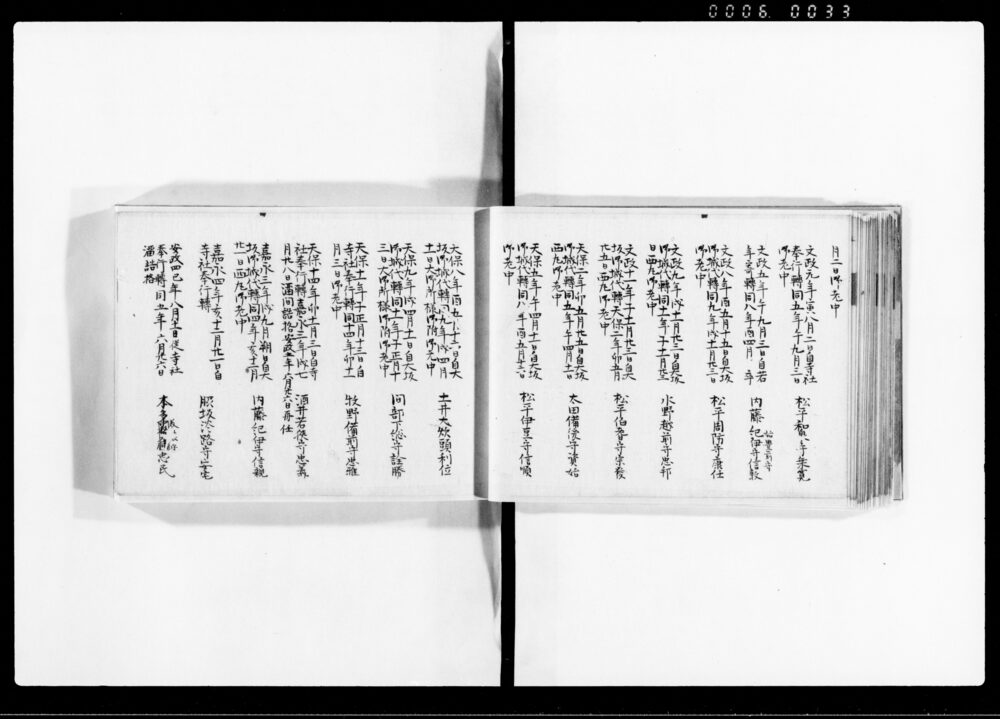 0006 0033
月二日御老中
文政元年寅八月二日自寺社
奉行轉同五年午九月三日
御老中
松平和泉守乗寛
文政五年午九月三日自若
年寄轉同八年酉四月 卒
内藤紀伊守信敦
文政八年酉五月十五日自大坂
御城代轉同九年戌十一月廿三日
御老中
松平周防守康任
文政九年戌十一月廿三日自大坂
御城代轉同十一年子十一月廿三
日西丸御老中
水野越前守忠邦
文政十一年子十一月廿三日自大
坂御城代轉天保二年卯五月
廿五日西丸御老中
松平伯耆守宗發
天保二年卯五月廿五日自大坂
御城代轉同五年午四月十一日
西丸御老中
太田備後守資始
天保五年午四月十一日自大坂
御城代轉同八年酉五月十六日
御老中
松平伊豆守信順
天保八年酉五月十六日自大
坂御城代轉同九年戌四月
十一日大御所様御附御老中
土井大炊頭利位
天保九年戌四月十一日自大坂
御城代轉同十一年子正月十
三日大御所様御附御老中
間部下総守詮勝
天保十一年子正月十三日自
寺社奉行轉同十四年卯十一
月三日御老中
牧野備前守忠雅
天保十四年卯十一月三日自寺
社奉行轉嘉永三年戌七
月廿八日溜間詰格安政五年六月廿六日再任
酒井若狭守忠義
嘉永三年戌九月朔日自大
坂御城代轉同四年亥十二月
廿一日西丸御老中
内藤紀伊守信親
嘉永四年亥十二月廿一日自
寺社奉行轉
脇坂淡路守安宅
安政四巳年八月十一日従寺社
奉行轉同五年六月廿六日
溜詰格
本多 忠民